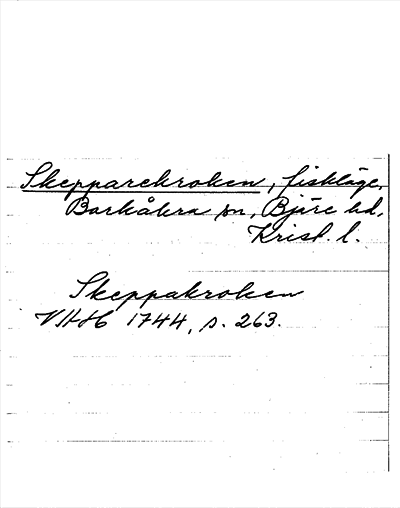 Skepparekroken, fiskläge,
Barkåkra sn, Bjäre hd,
Krist. l.
Skeppakroken
VHAH 1744, s. 263.